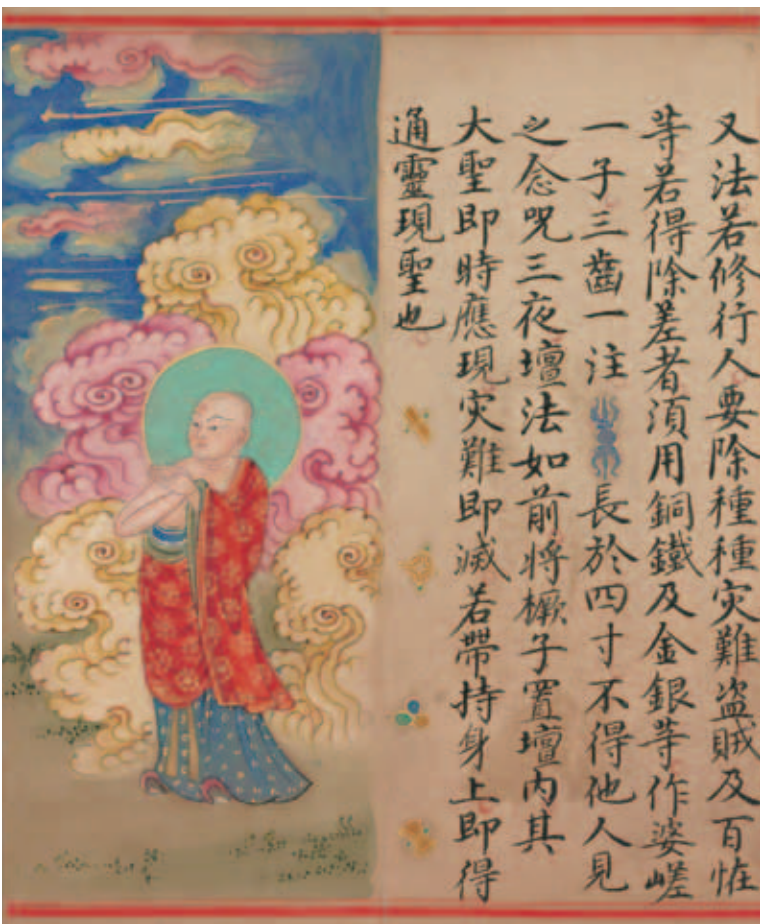 又法若修行人要除種種灾難盜賊及百恠
等若得除差者須用銅鐵及金銀等作婆嵯
一子三齒一注長於四寸不得他人見
之念呪三夜壇法如前將橛子置壇內其
大聖即時應現灾難即滅若帶持身上即得
通靈現聖也